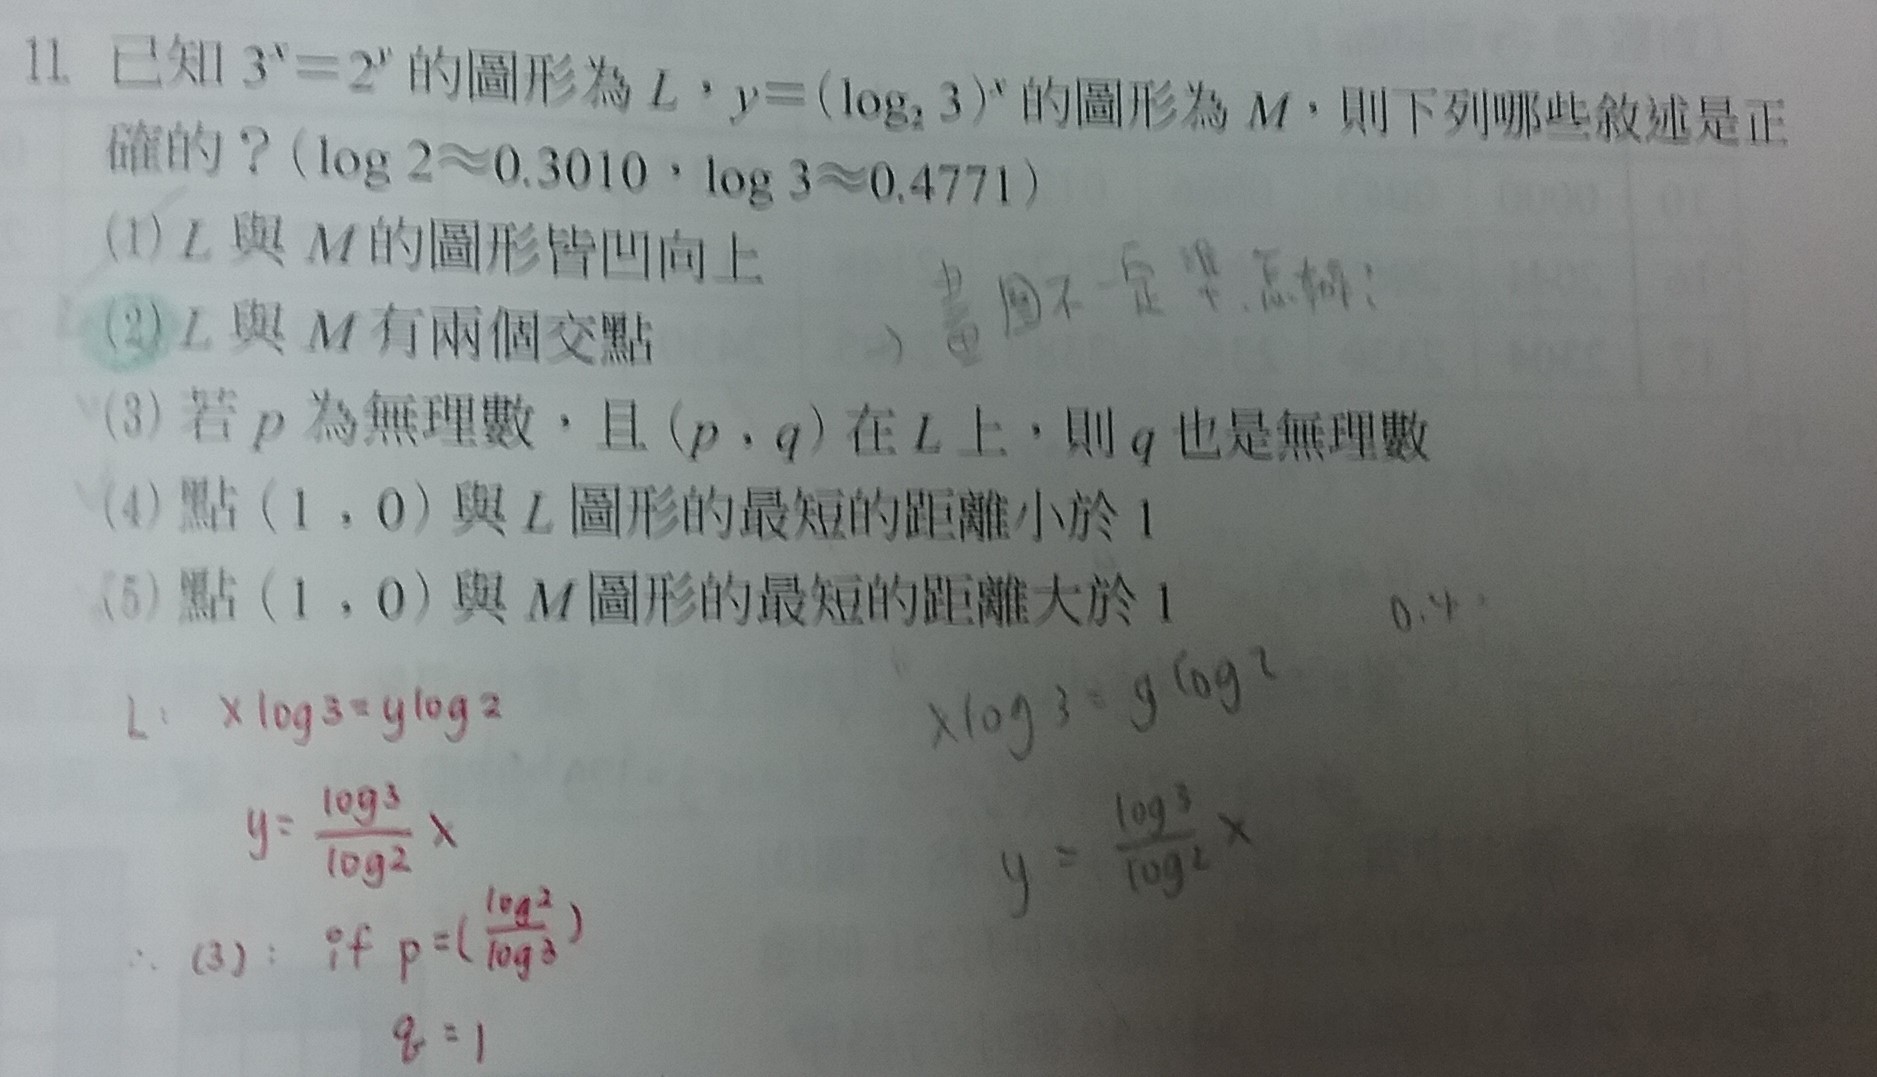 11. 已知 3ˣ=2ʸ 的圖形為 L，y=(log₂ 3)ˣ 的圖形為 M，則下列哪些敘述是正
確的？(log 2≈0.3010，log 3≈0.4771)
(1) L 與 M 的圖形皆凹向上
(2) L 與 M 有兩個交點
→ 畫圖不一定準.怎辦?
(3) 若 p 為無理數，且 (p，q) 在 L 上，則 q 也是無理數
(4) 點 (1，0) 與 L 圖形的最短的距離小於 1
(5) 點 (1，0) 與 M 圖形的最短的距離大於 1
0.4
L: x log3 = y log2
y = log3/log2 x
∴ (3): if p = (log2/log3)
q = 1
x log3 = y log2
y = log3/log2 x